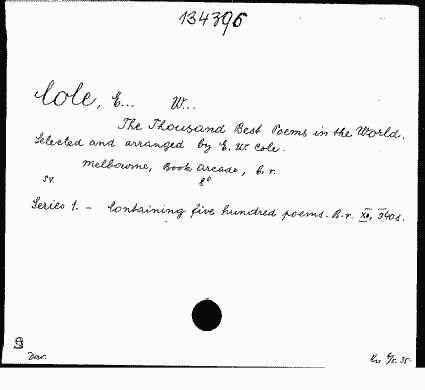 134396
Cole, E... W...
The Thousand Best Poems in the World.
Selected and arranged by E. W. Cole.
Melbourne, Book Arcade, b. r.
sv. 8°
Series 1. - Containing five hundred poems. B. r. XV, 540 s.
Dar.